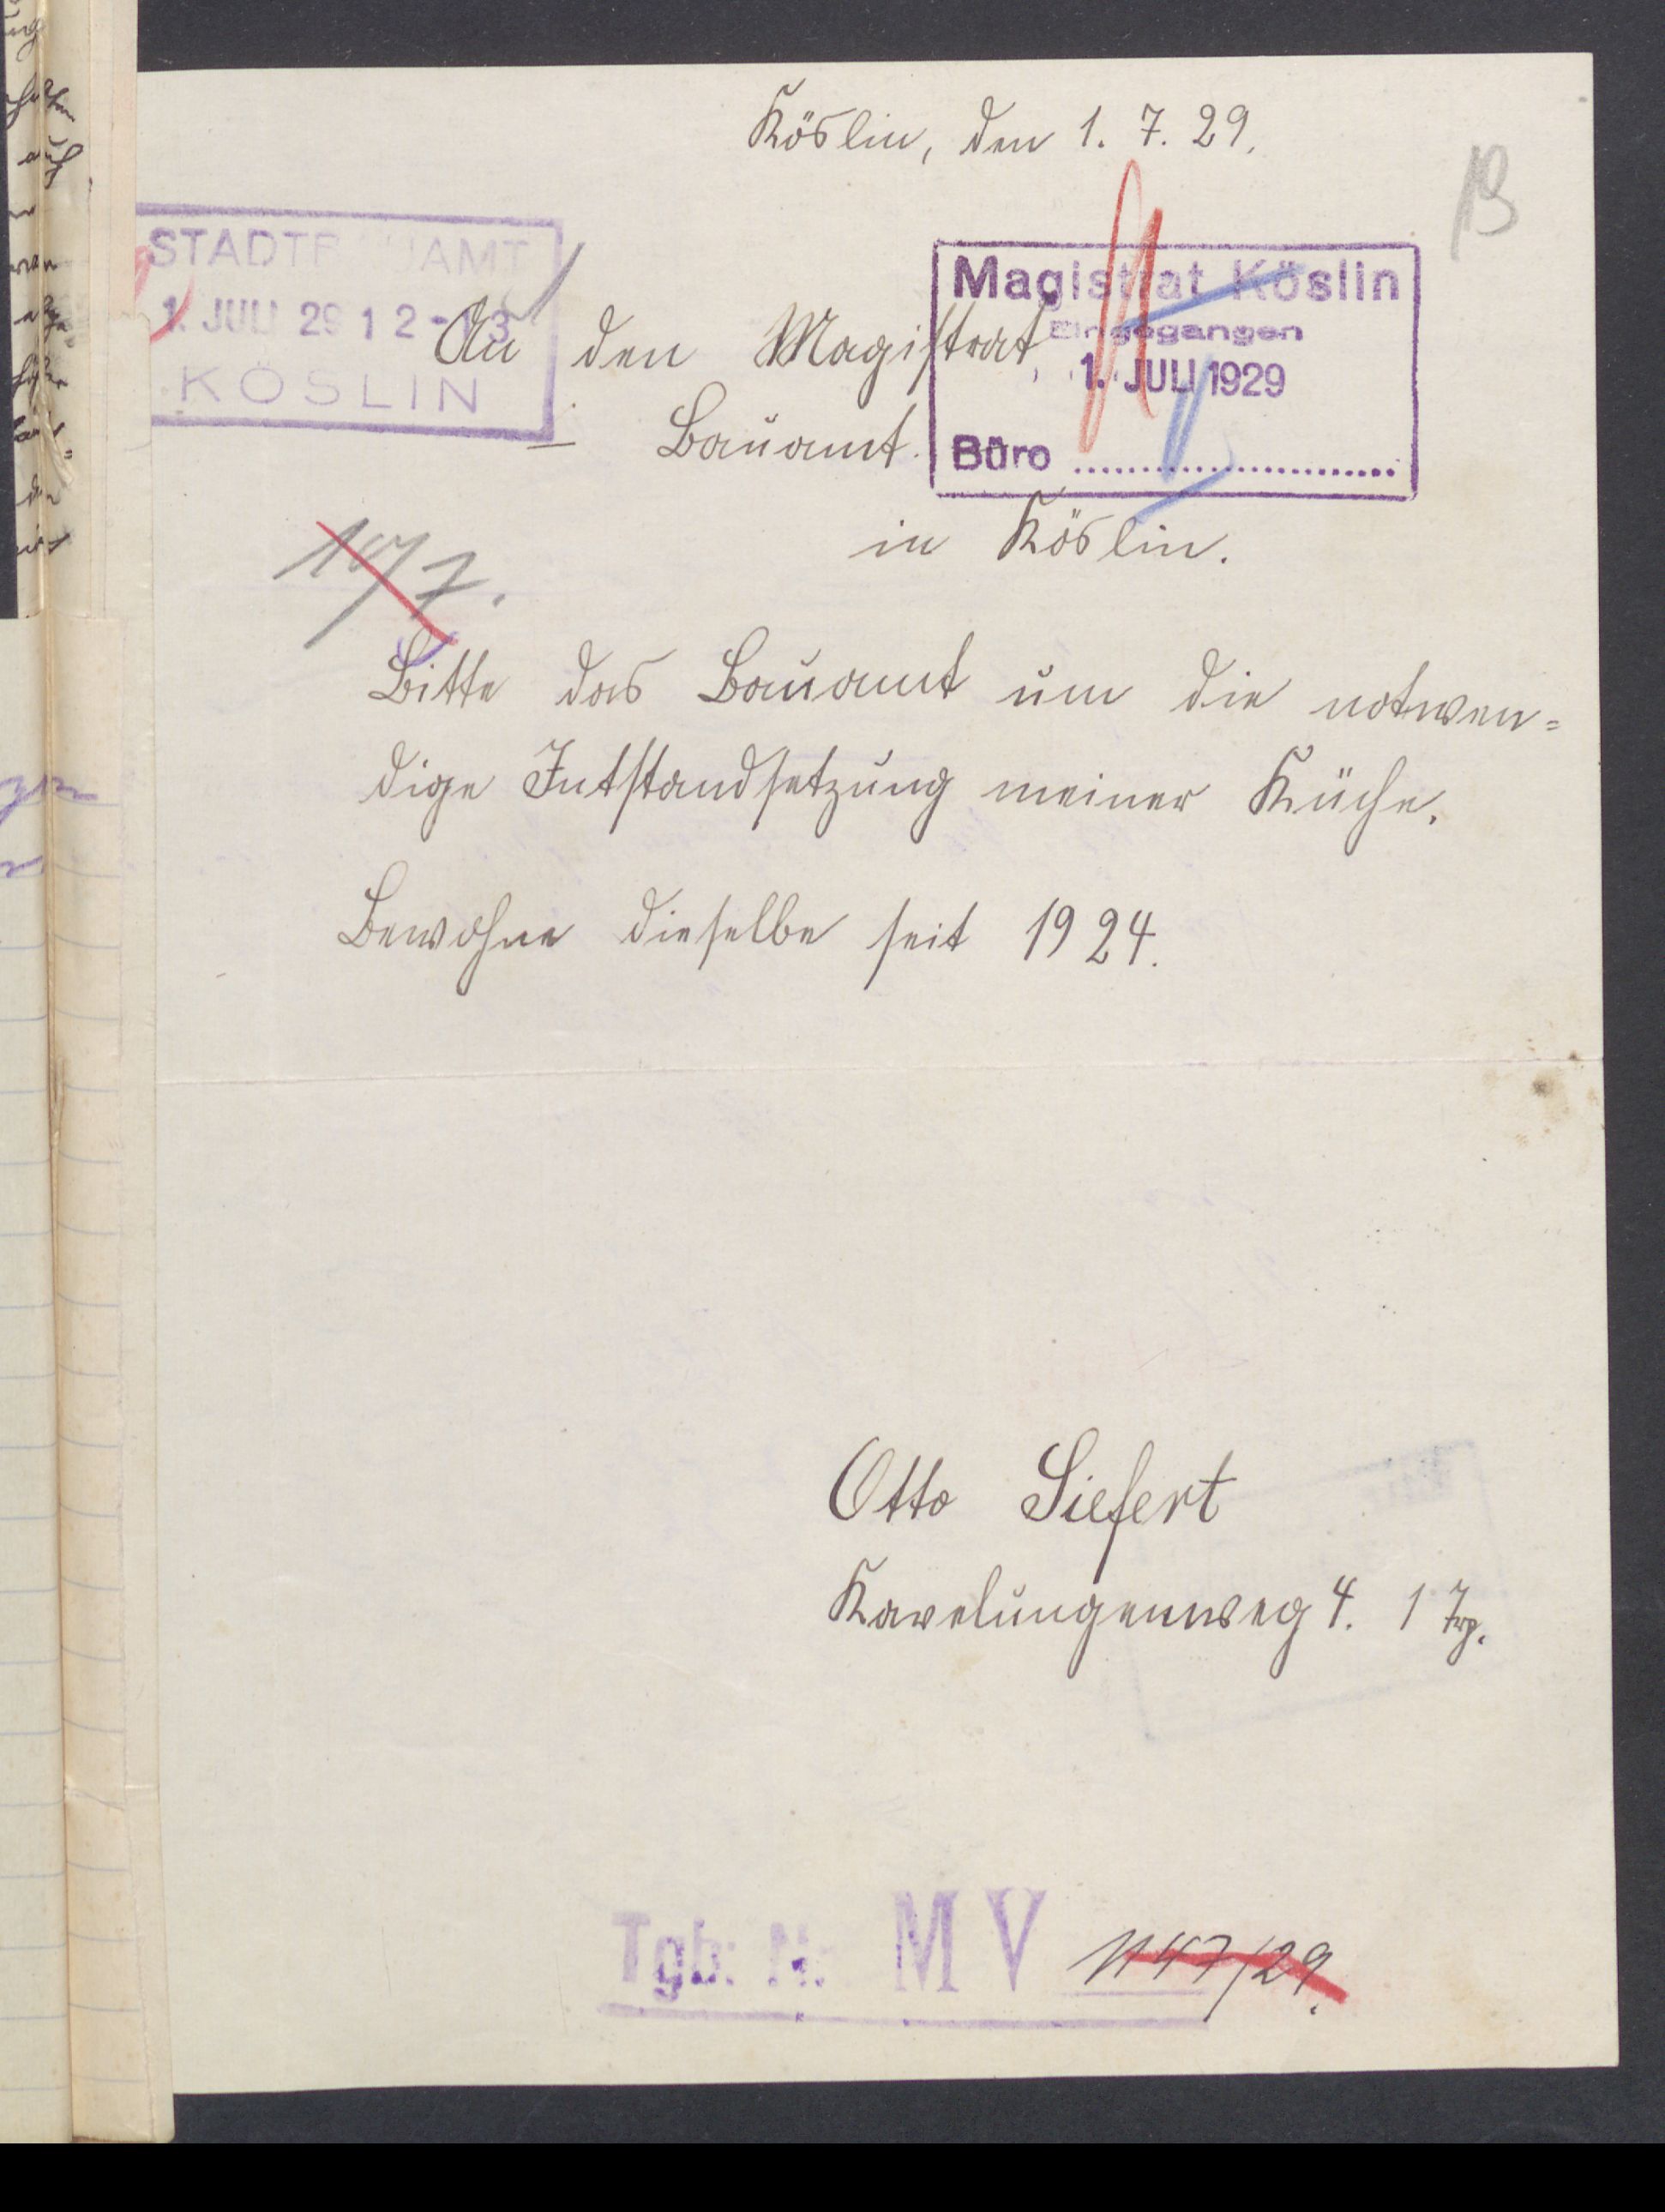 Köslin, den 1. 7. 29.
13
STADTBAUAMT
1. JULI 29 12-13
KÖSLIN
Magistrat Köslin
Eingegangen
1. JULI 1929
Büro
An den Magistrat
– Bauamt.
in Köslin.
10/7.
Bitte das Bauamt um die notwen=
dige Intstandsetzung meiner Küche.
Bewohne dieselbe seit 1924.
Otto Siefert
Kavelungenweg 4. 1 Trp.
Tgb. Nr. M V 1147/29.